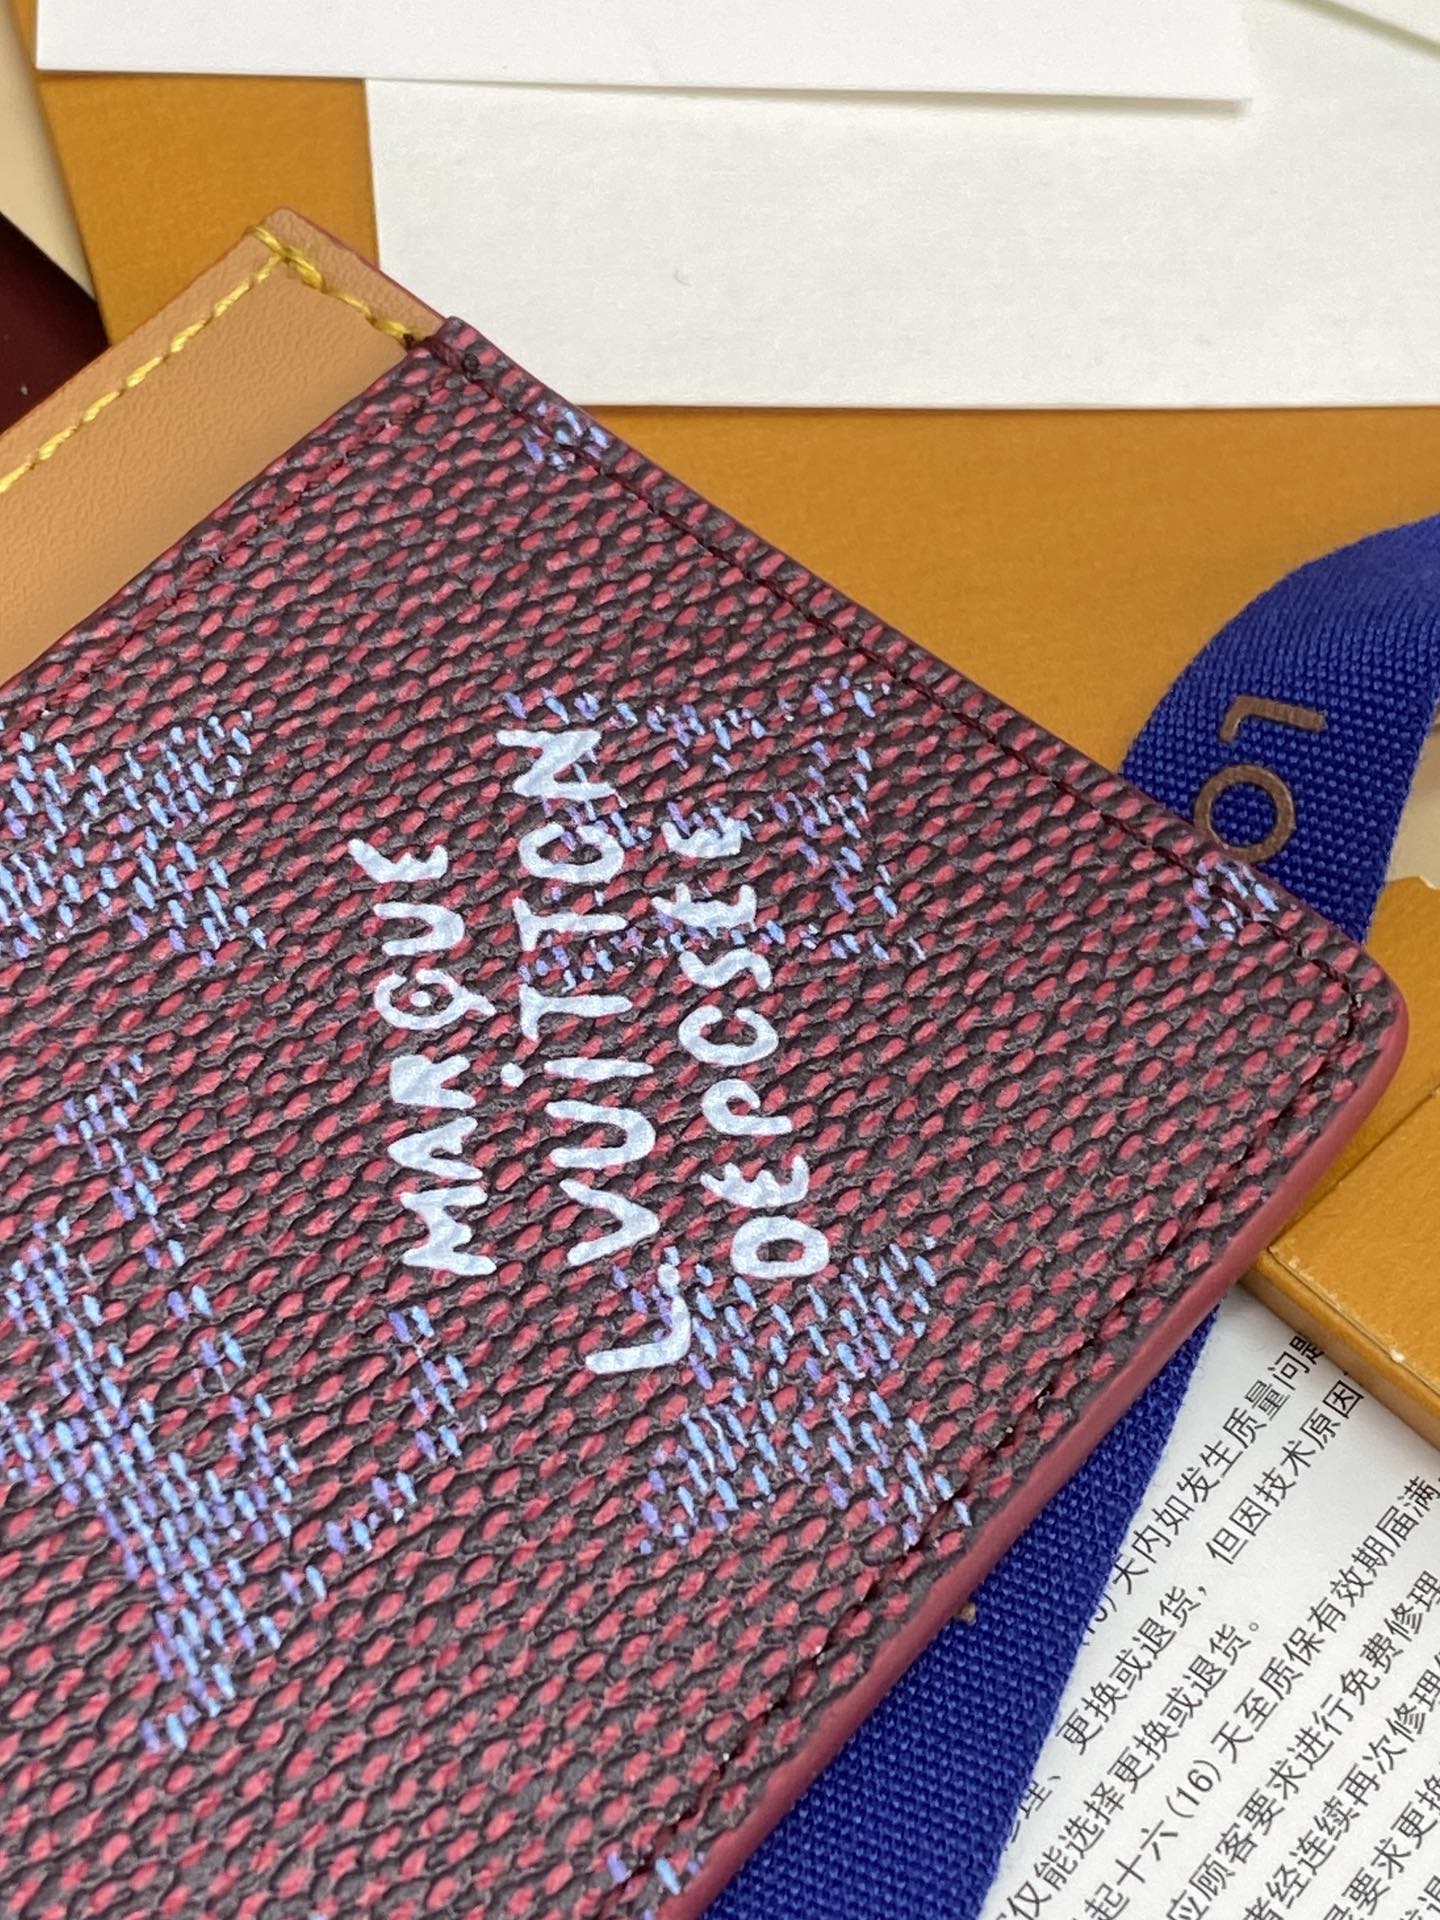 MARQUE
L. VUiTTON
DEPOSEE
LO
天内如发生质量问题
更换或退货，但因技术原因
仅能选择更换或退货。
起十六(16)天至质保有效期届满
应顾客要求进行免费修理
者经连续再次修理
要求更换